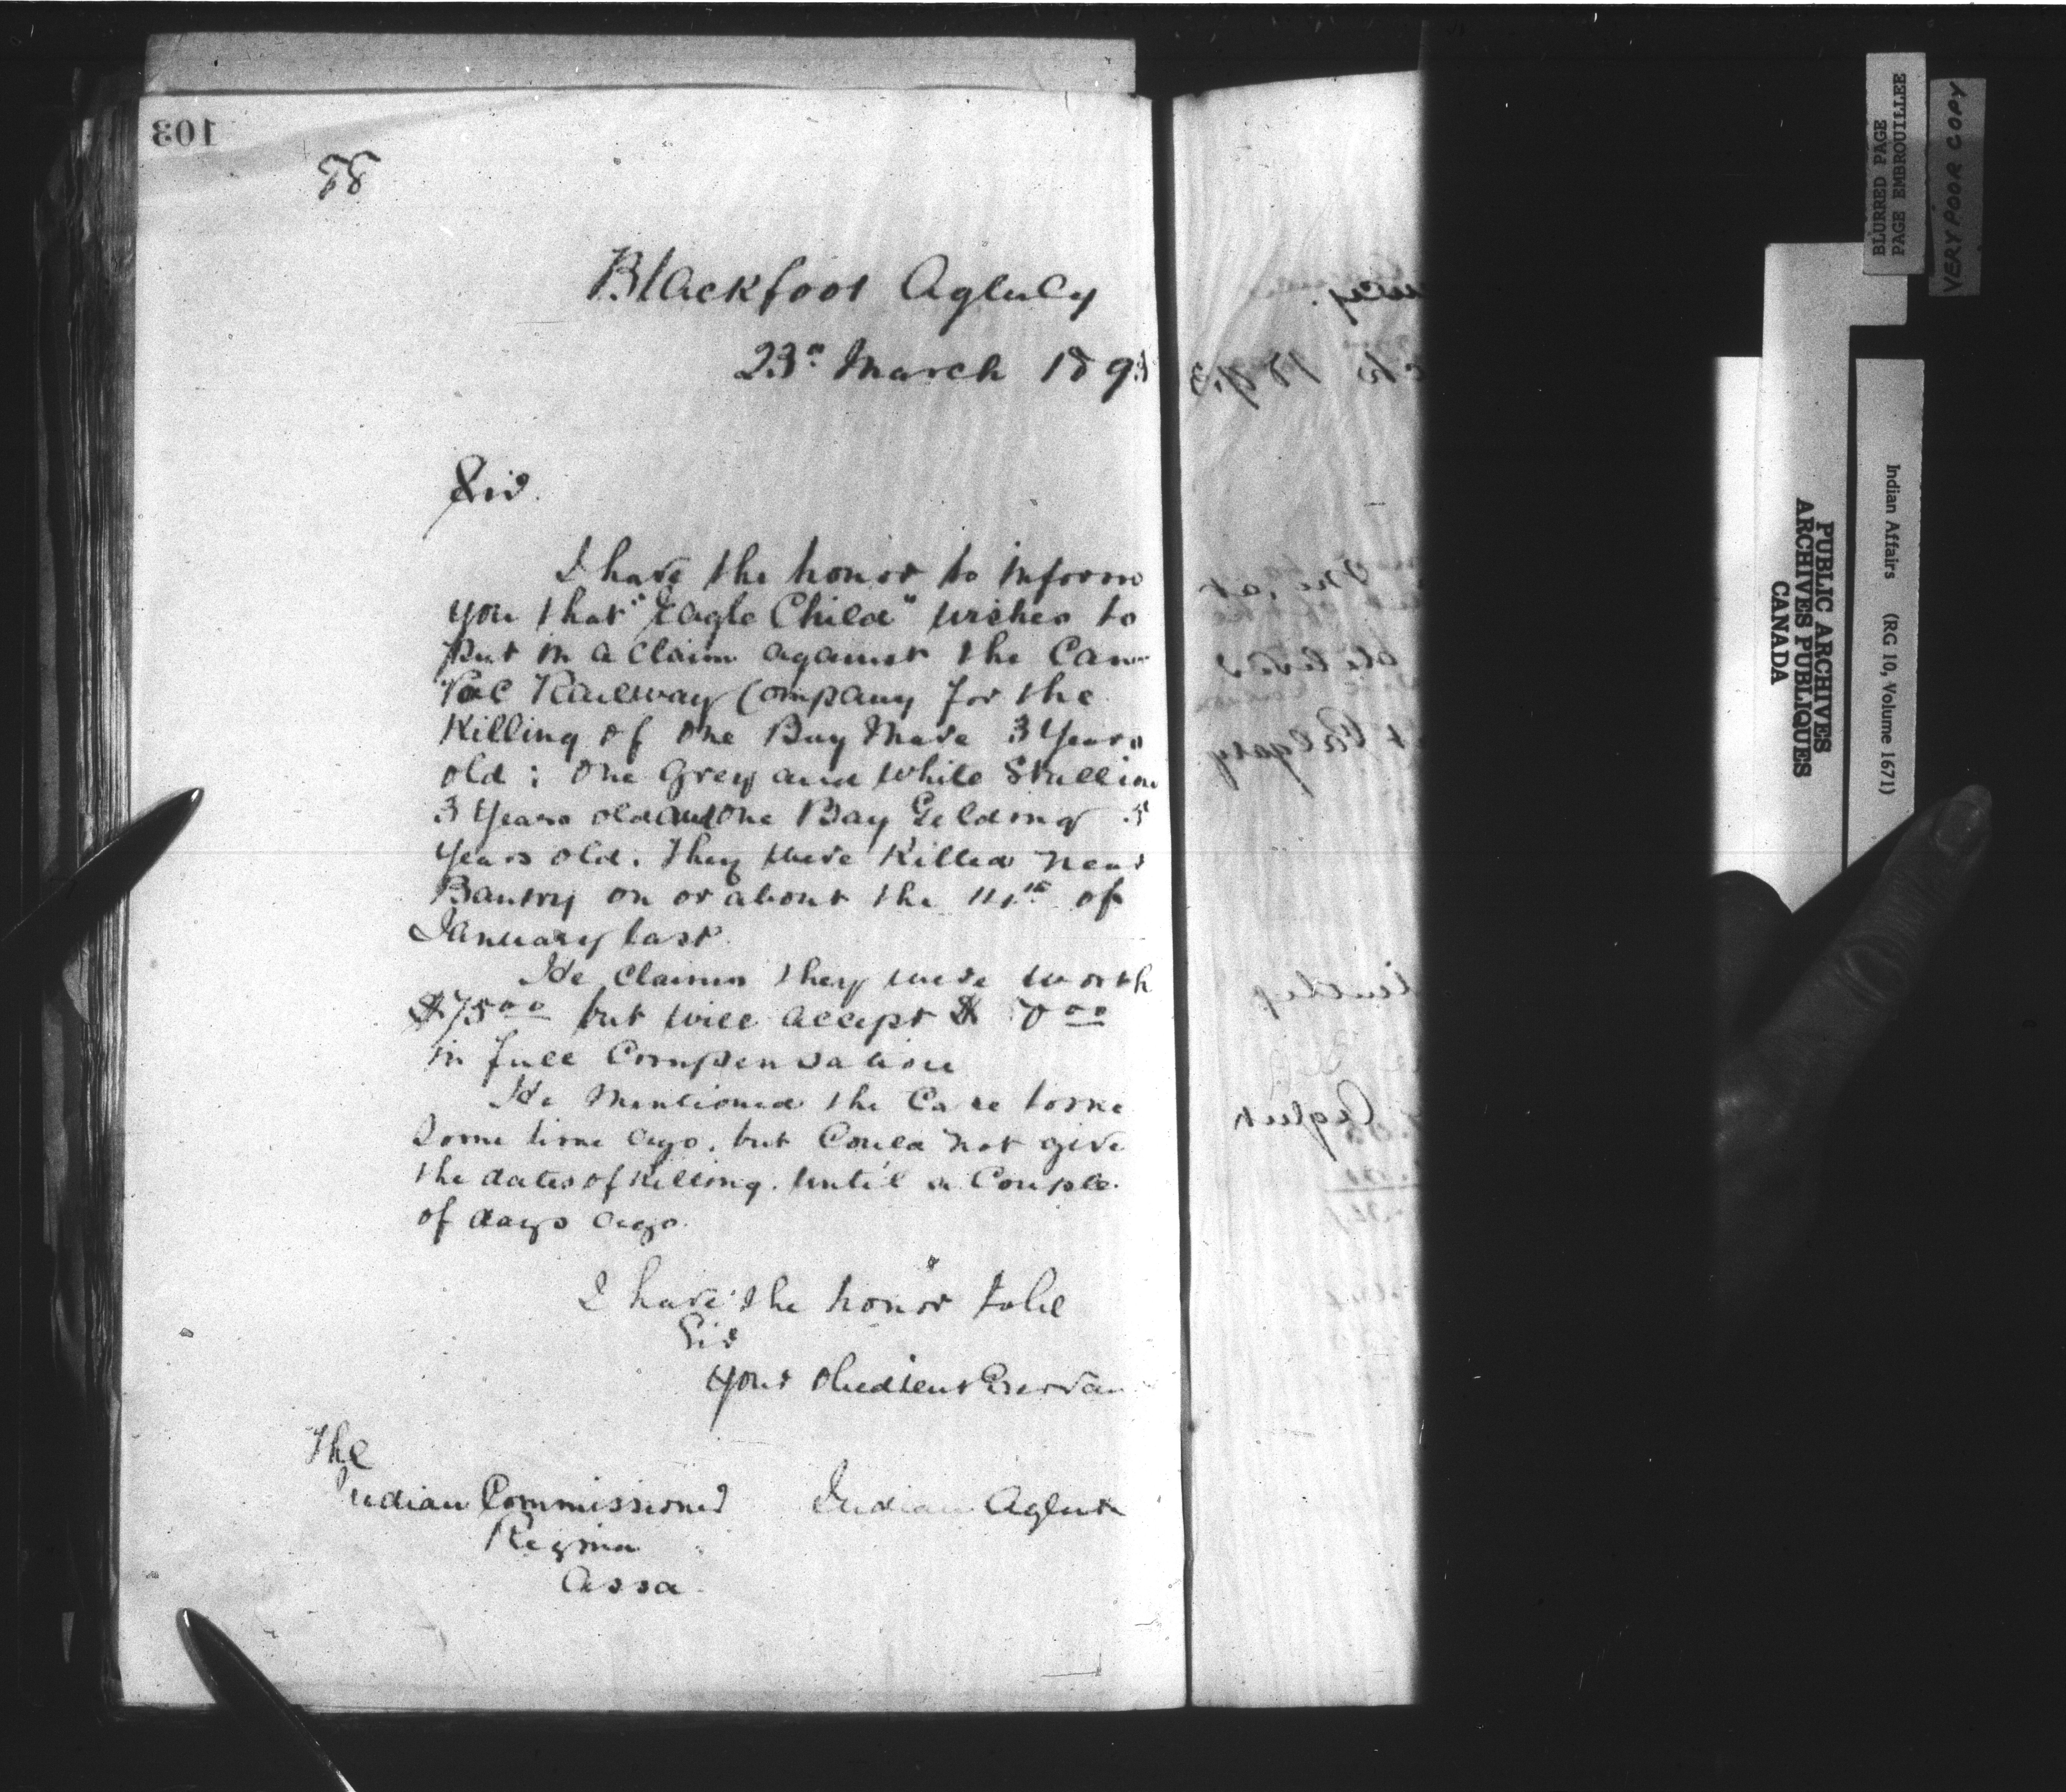 103
58
Blackfoot Agency
23rd March 1893
Sir.
I have the honor to inform
you that "Eagle Child" wishes to
put in a claim against the Can
Pac Railway Company for the
Killing of One Bay Mare 3 Years
old; One Grey and White Stallion
3 Years old and One Bay Gelding 5
Years old. They were Killed near
Bantry on or about the 14th of
January last.
He Claims they were worth
$75 00 but will accept $ 00
in full Compensation
He Mentioned the Case to me
Some time ago. but Could not give
the dates of Killing. Until a Couple
of days ago.
I have the honor to be
Sir
Your Obedient Servan
The
Indian Commissioner
Indian Agent
Regina
Assa.
ch 1893
at
Calgary
Agent
BLURRED PAGE
PAGE EMBROUILLEE
VERY POOR COPY
PUBLIC ARCHIVES
ARCHIVES PUBLIQUES
CANADA
Indian Affairs (RG 10, Volume 1671)